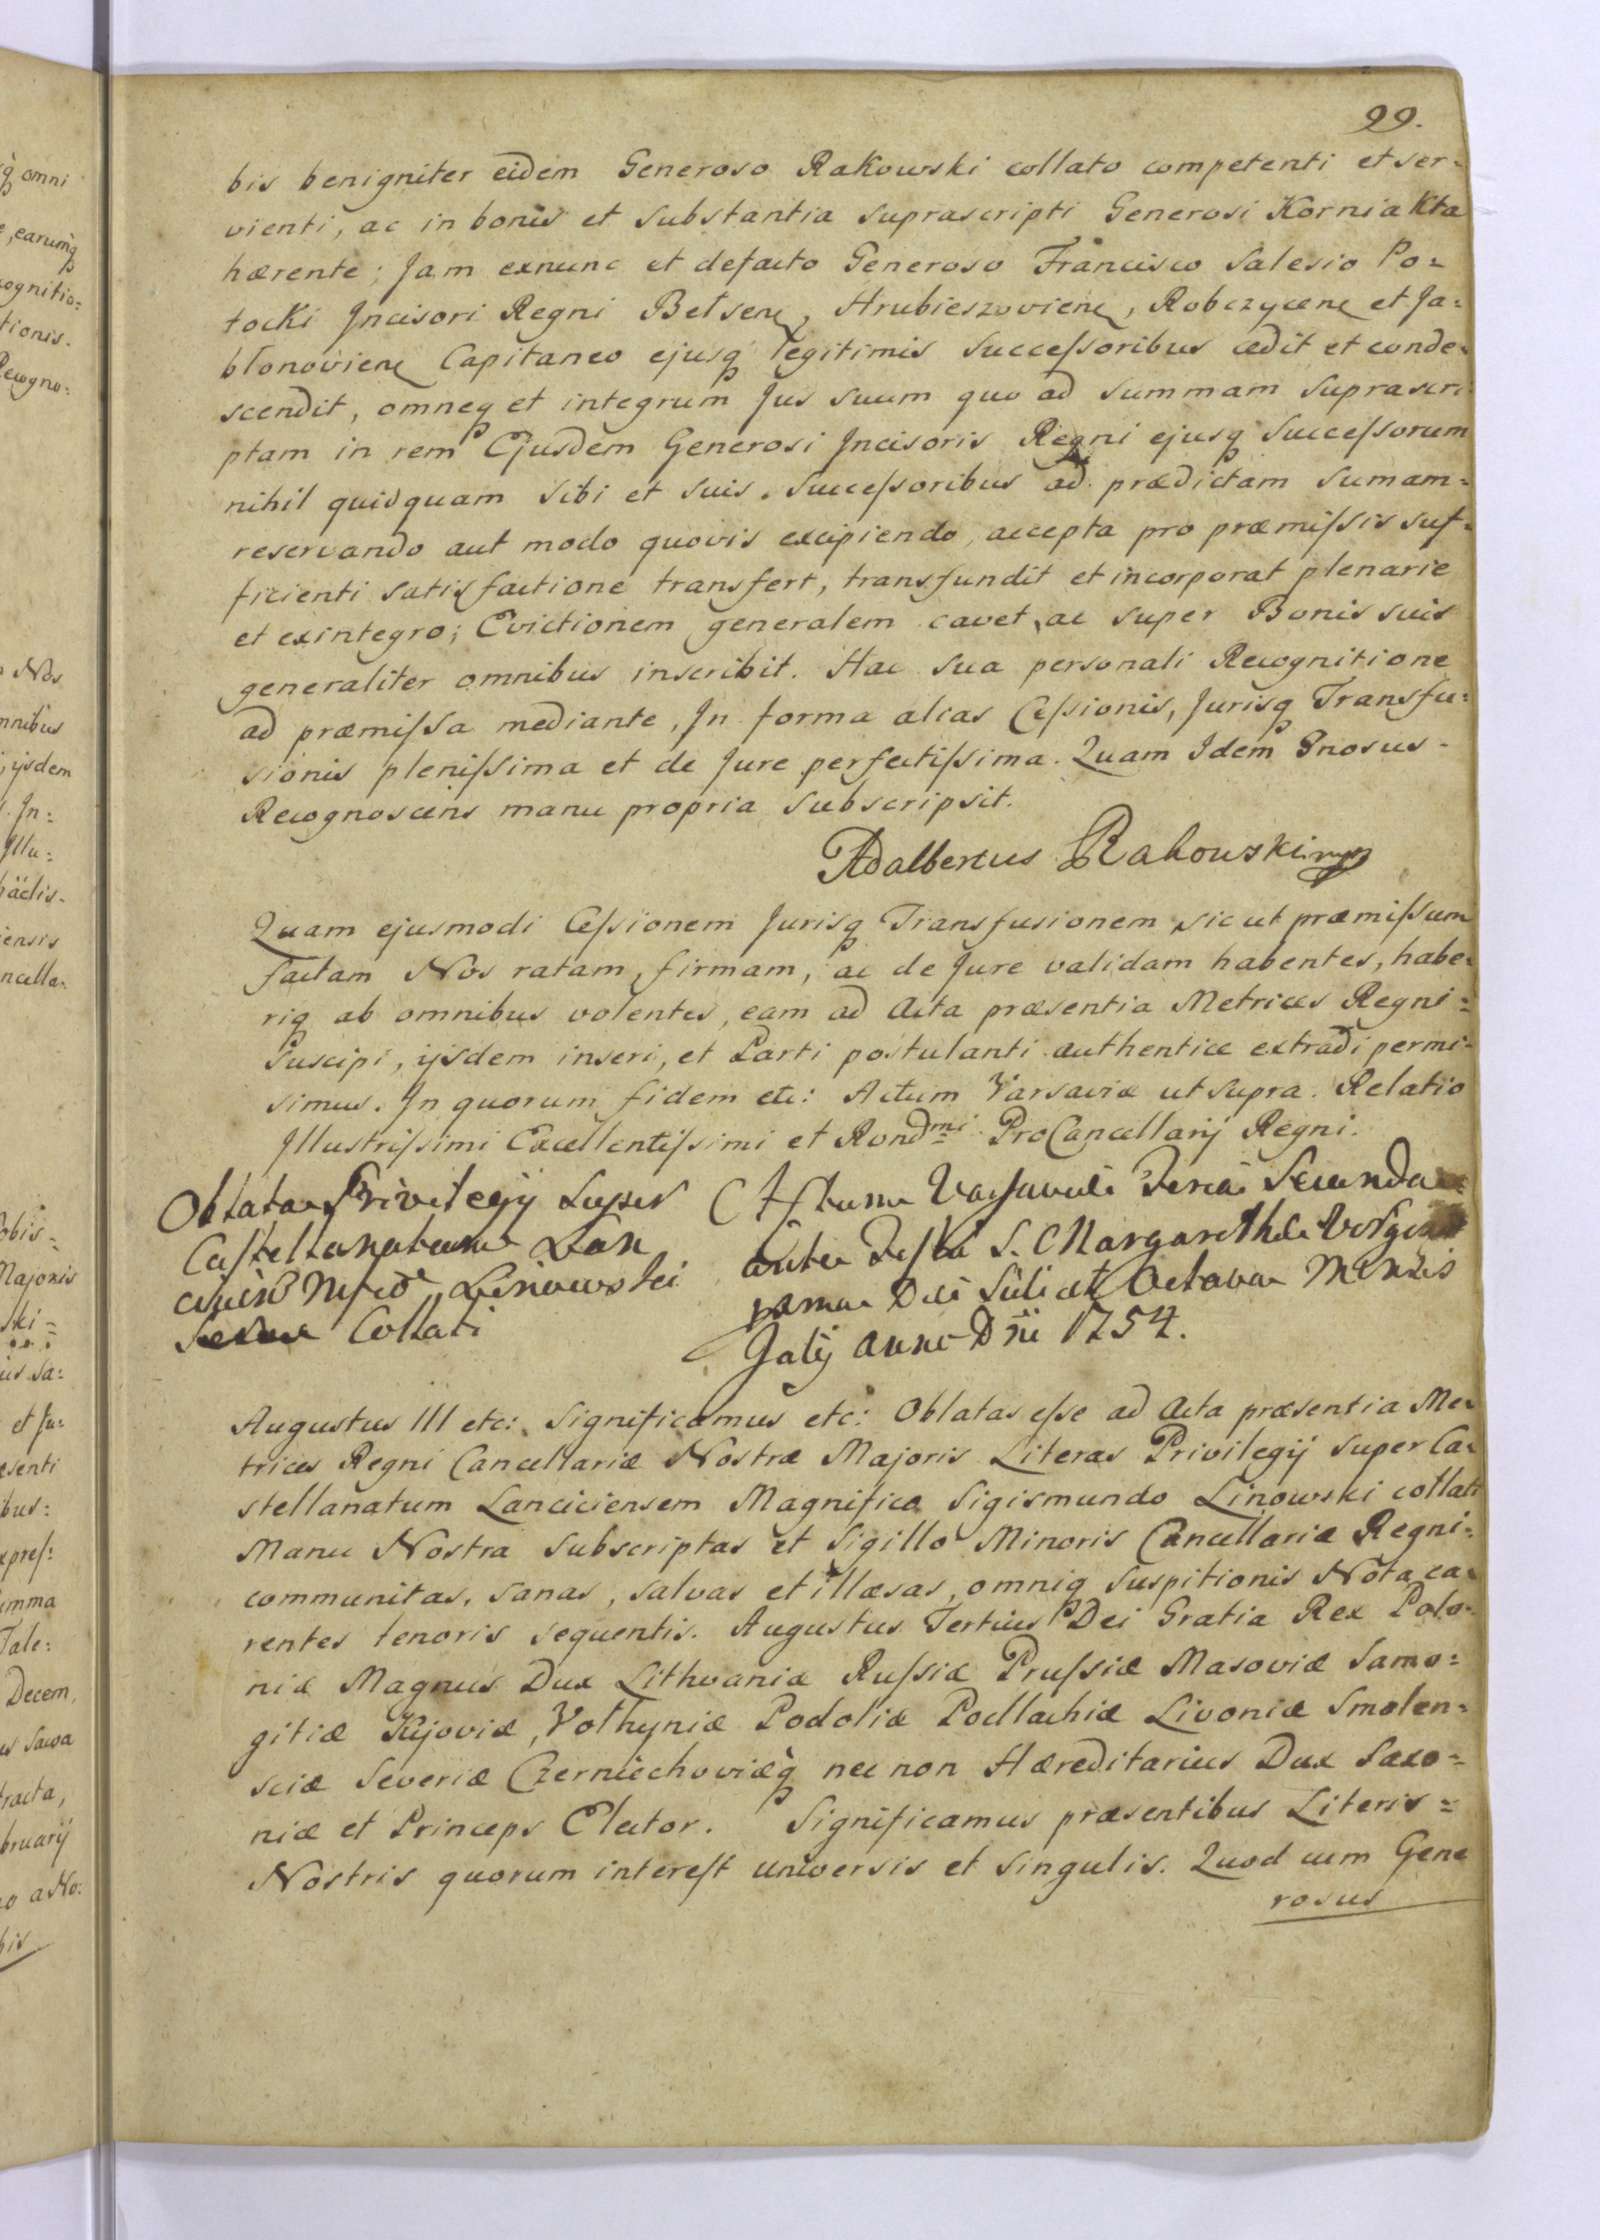 99.
bis benigniter eidem Generoso Rakowski collato competenti et ser=
vienti, ac in bonis et substantia suprascripti Generosi Korniakta
hærente; Jam exnunc et defacto Generoso Francisco Salesio Po=
tocki Incisori Regni Belsenę, Hrubieszovienę, Robczycenę et Ja=
blonovienę Capitaneo ejusq legitimis Successoribus cedit et conde=
scendit, omneq et integrum Jus suum quo ad summam suprascri=
ptam in rem Ejusdem Generosi Incisoris Regni ejusq Successorum
nihil quidquam sibi et suis Successoribus ad prædictam sumam=
reservando aut modo quovis excipiendo, accepta pro præmissis suf=
ficienti satisfactione transfert, transfundit et incorporat plenarie
et exintegro; Evictionem generalem cavet, ac super Bonis suis
generaliter omnibus inscribit. Hac sua personali Recognitione
ad præmissa mediante, In forma alias Cessionis, Jurisq Transfu=
sionis plenissima et de Jure perfectissima. Quam Idem Gnosus-
Recognoscens manu propria subscripsit.
Adalbertus Rakowski mp
Quam ejusmodi Cessionem Jurisq Transfusionem sicut præmissum
factam Nos ratam, firmam, ac de Jure validam habentes, habe=
riq ab omnibus volentes, eam ad Acta præsentia Metrices Regni=
Suscipi, ijsdem inseri, et Parti postulanti authentice extradi permi=
simus. In quorum fidem etc: Actum Varsaviæ ut supra. Relatio
Illustrissimi Excellentissimi et Rondmi ProCancellarij Regni.
Oblata Privilegij super
Castellanatum Lan
Mfco Linowski
Collati
Actum Varsaviæ Feria Secunda
ante Festa S. Margarethæ Virginis
Die Octava Mensis
July anno Dni 1754.
Augustus III etc: Significamus etc: Oblatas esse ad Acta præsentia Me=
trices Regni Cancellariæ Nostræ Majoris Literas Privilegij super Ca=
stellanatum Lanciciensem Magnifico Sigismundo Linowski collati
Manu Nostra subscriptas et Sigillo Minoris Cancellariæ Regni=
communitas, sanas, salvas et illæsas, omniq suspitionis Nota ca=
rentes tenoris sequentis. Augustus Tertius Dei Gratia Rex Polo=
niæ Magnus Dux Lithvaniæ Russiæ Prussiæ Masoviæ Samo=
gitiæ Kijoviæ, Volhyniæ Podoliæ Podlachiæ Livoniæ Smolen=
sciæ Severiæ Czerniechoviæq nec non Hæreditarius Dux Saxo=
niæ et Princeps Elector. Significamus præsentibus Literis=
Nostris quorum interest universis et singulis. Quod cum Gene
rosus